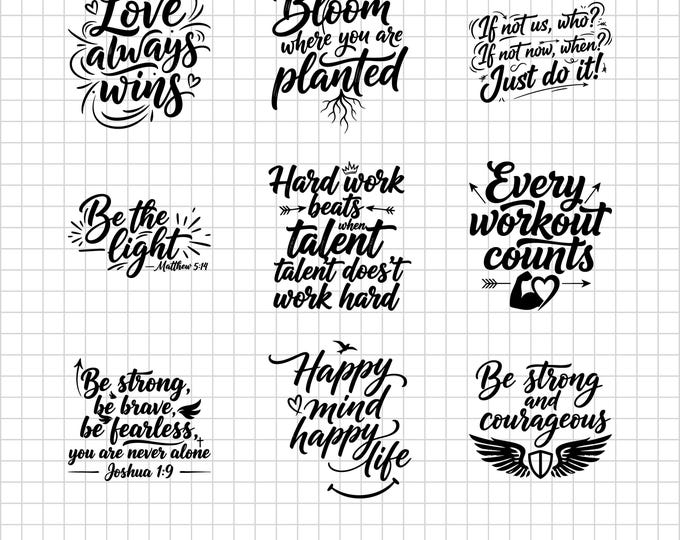 Love
always
wins
Bloom
where you are
planted
If not us, who?
If not now, when?
Just do it!
Be the
light
—Matthew 5:14
Hard work
beats
when
talent
talent doesn't
work hard
Every
workout
counts
Be strong,
be brave,
be fearless,
you are never alone
Joshua 1:9
Happy
mind
happy
life
Be strong
and
courageous